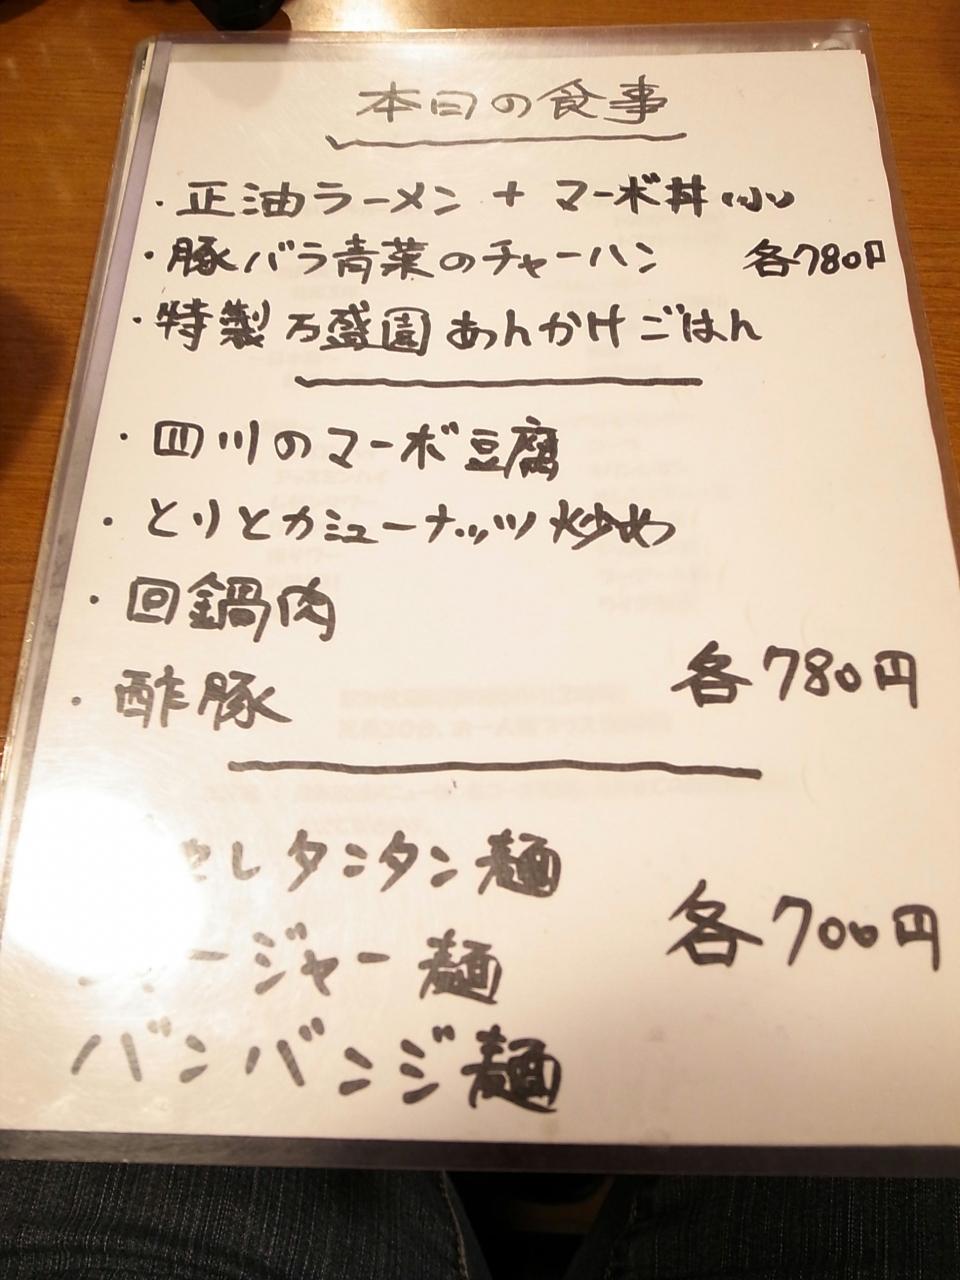 本日の食事
・正油ラーメン + マーボ丼(小)
・豚バラ青菜のチャーハン 各780円
・特製万盛園あんかけごはん
・四川のマーボ豆腐
・とりとカシューナッツ炒め
・回鍋肉
・酢豚 各780円
セレタンタン麺
ージャー麺 各700円
バンバンジ麺